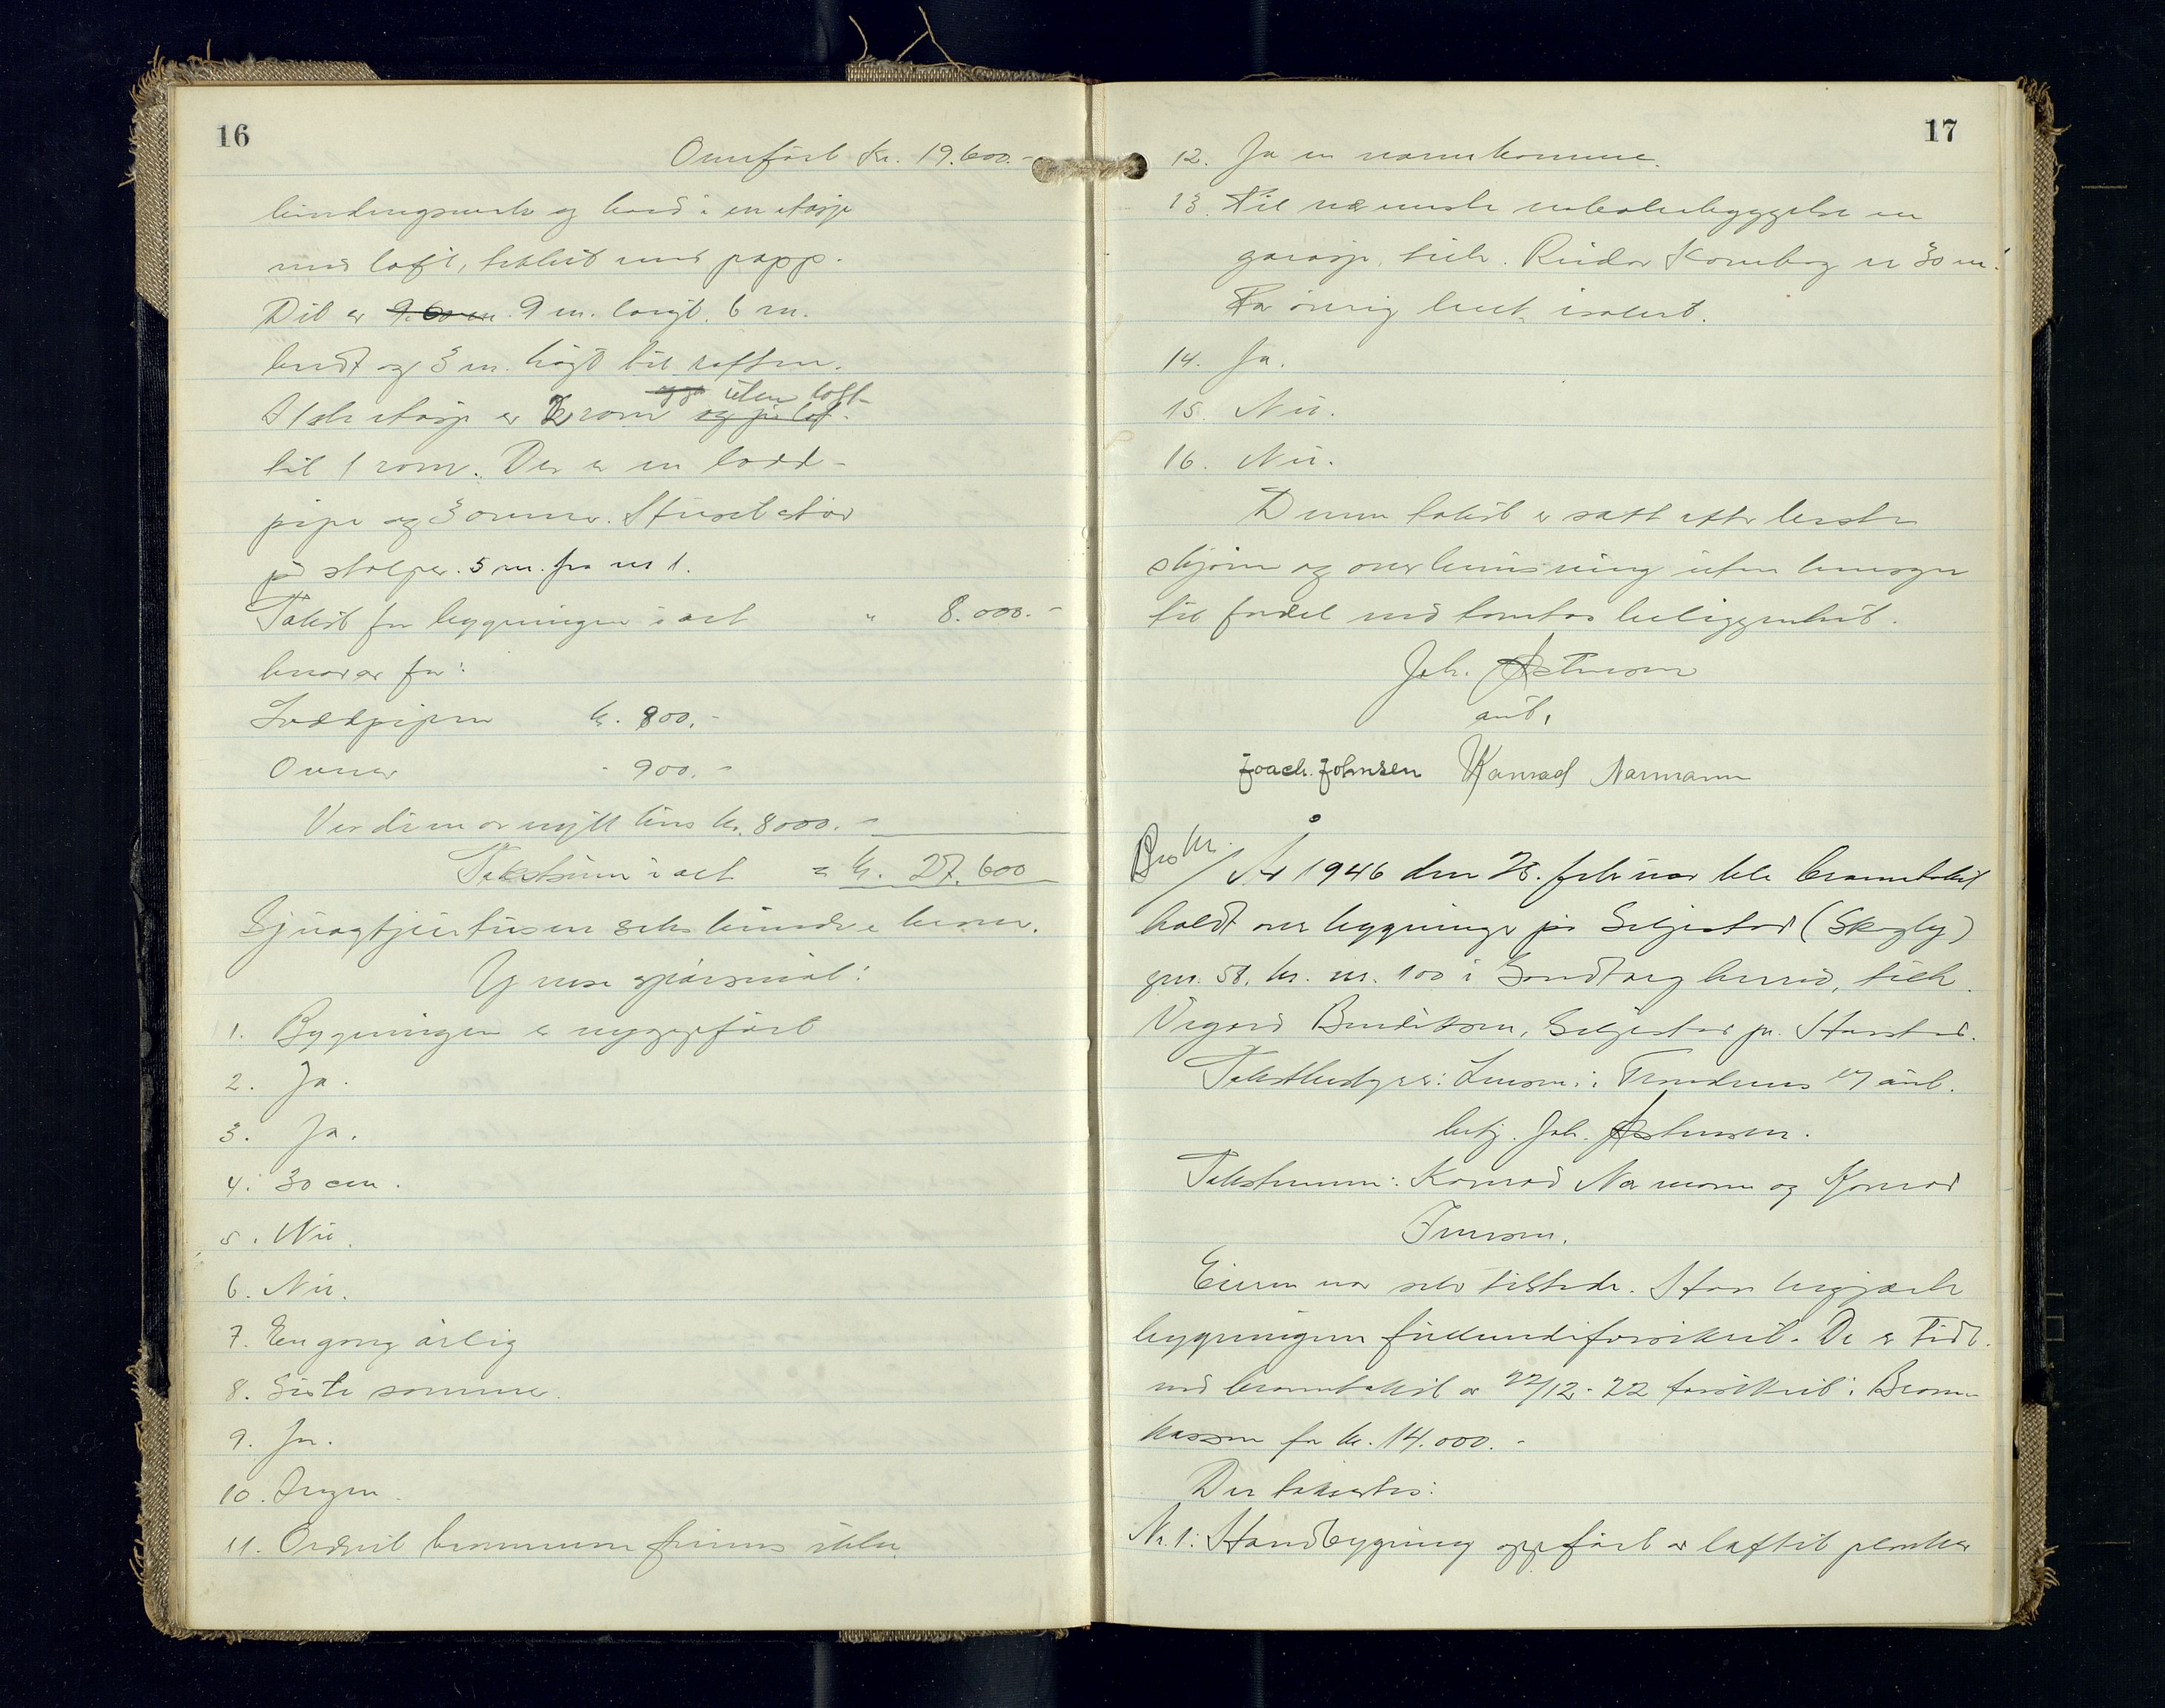 16
Overført Kr. 19.600.-
bindingsverk og bord i en etasje
med loft, tekket med papp.
Det er 9.60 m. 9 m. langt. 6 m.
bredt og 3 m. høgt til raften.
I 1ste etasje er 2 rom og på lof-
oppe uten loft-
til 1 rom. Der er en lodd-
pipe og 3 ovner. Huset står
på stolper. 5 m. fra nr 1.
Takst for bygningen i alt " 8.000.-
hvorav for:
Loddpipen kr. 800.-
Ovner - 900.-
Verdien av nytt hus kr. 8000.-
Takstsum i alt = kr. 27.600
Sjuogtjuetusen seks hundre kroner.
Ymse spørsmål:
1. Bygningen er nyoppført
2. Ja.
3. Ja.
4. 30 cm.
5. Nei.
6. Nei.
7. En gang årlig
8. Siste sommer.
9. Ja.
10. Ingen.
11. Ordnet brannvern finnes ikke.
17
12. Ja en vannkomme.
13. Til nærmeste nabobebyggelse en
garasje, tilh. Reidar Korneberg er 30 m.
For øvrig helt isolert.
14. Ja.
15. Nei.
16. Nei.
Denne takst er satt etter beste
skjønn og overbevisning uten hensyn
til fordel ved tomtas beliggenhet.
Joh. Østensen
aut.
Joach. Johnsen Konrad Normann
År 1946 den 28. februar ble branntakst
holdt over bygninger på Seljestad (Skogly)
gnr. 58, br. nr. 100 i Sandtorg herred, tilh.
Vigard Bendiksen, Seljestad pr. Harstad.
Takstbestyrer: Lensm. i Trondenes v/ aut.
betj. Joh. Østensen.
Takstmenn: Konrad Normann og Konrad
Jensen.
Eieren var selv tilstede. Han begjærte
bygningene fullverdiforsikret. De er tidl.
ved branntakst av 22/12-22 forsikret i Brann-
kassen for kr. 14.000.-
Der takseres:
Nr. 1: Våndbygning oppført av laftet planker